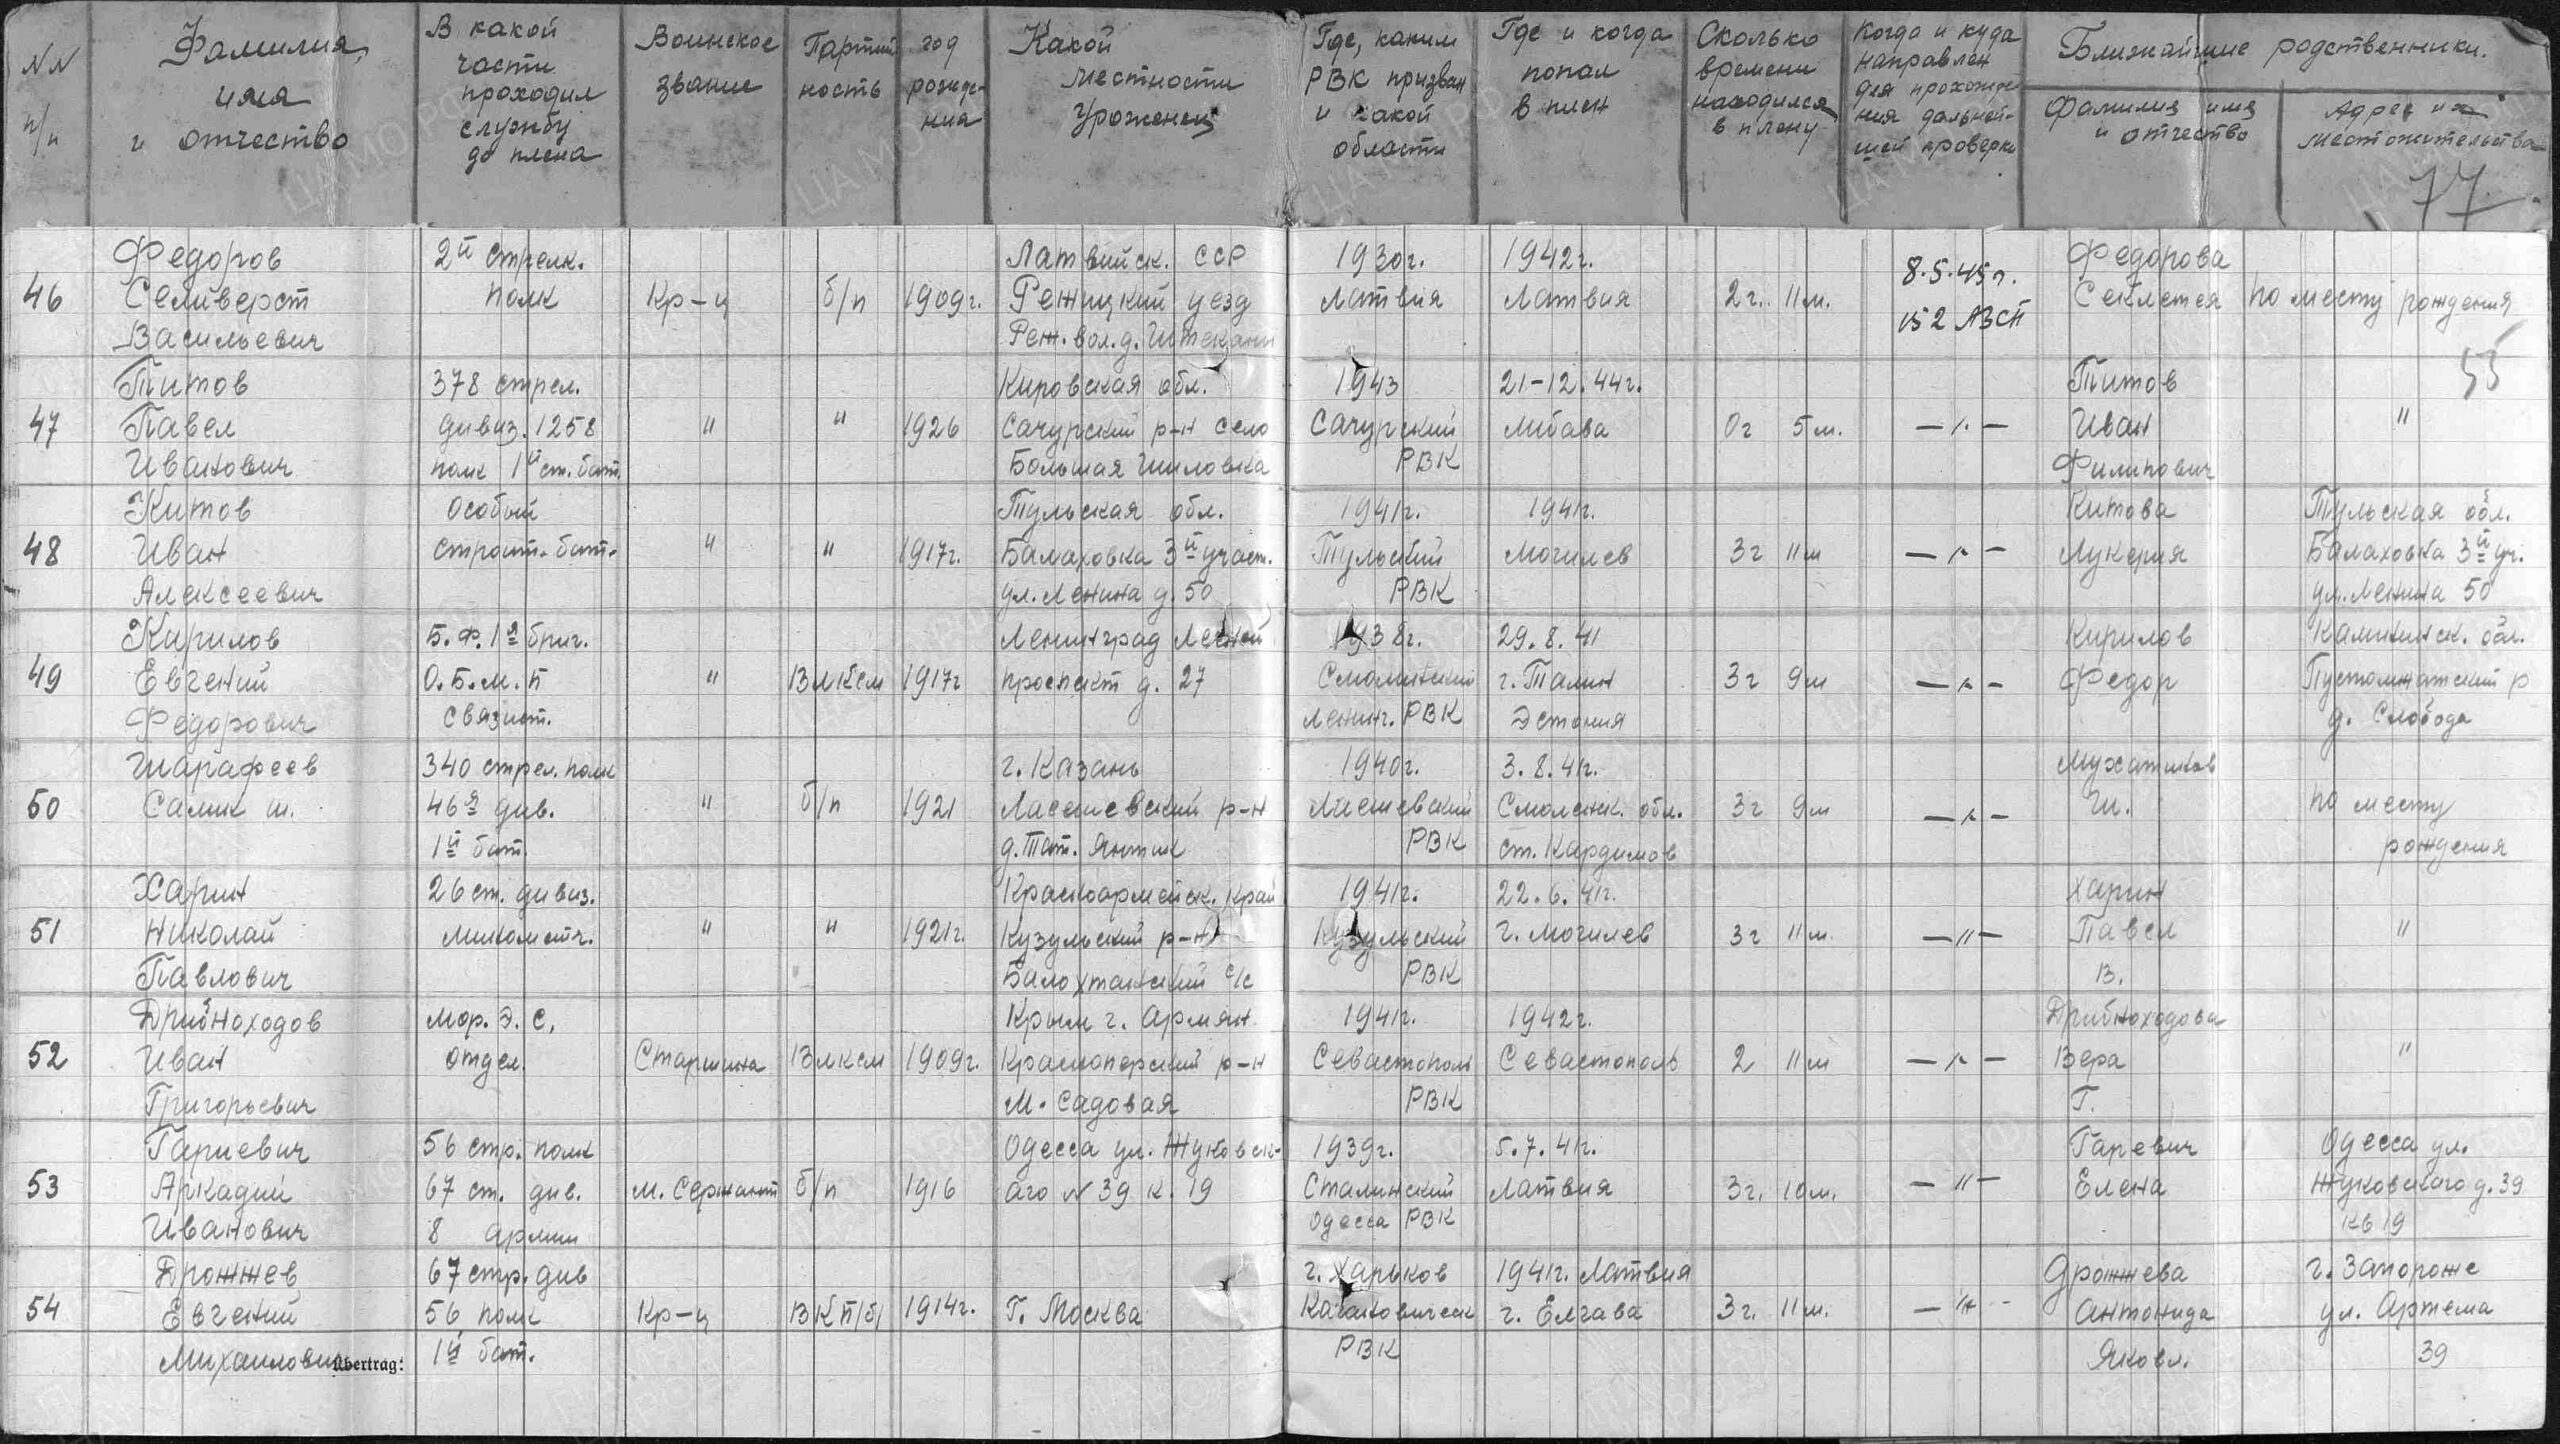 NN п/п
Фамилия, имя и отчество
В какой части проходил службу до плена
Воинское звание
Партийность
год рождения
Какой местности уроженец
Где, каким РВК призван и какой области
Где и когда попал в плен
Сколько времени находился в плену
Когда и куда направлен для прохождения дальнейшей проверки
Ближайшие родственники.
Фамилия имя и отчество
Адрес их местожительства
77
Федоров 2й стрелк. Латвийск. ССР 1930г. 1942г. Федорова
46 Селиверст полк Кр-ц б/п 1909г. Режицкий уезд Латвия Латвия 2г. 11м. 8.5.45г. Секлетея по месту рождения
Васильевич Реж. вол. д. 152 АЗСП
55
Титов 378 стрел. Кировская обл. 1943 21-12.44г. Титов
47 Павел дивиз. 1258 " " 1926 Сачурский р-н село Сачурский Либава 0г 5м. -"- Иван "
Иванович полк 1й ст. бат. Большая Шиловка РВК Филипович
Китов Особый Тульская обл. 1941г. 1941г. Китова Тульская обл.
48 Иван строит. бат. " " 1917г. Балаховка 3й участ. Тульский Могилев 3г 11м -"- Лукерия Балаховка 3й уч.
Алексеевич ул. Ленина д. 50 РВК ул. Ленина 50
Кирилов Б.Ф. 1я бриг. Ленинград Лесной 1938г. 29.8.41 Кирилов Калининск. обл.
49 Евгений О.Б.м.П " ВЛКСМ 1917г проспект д. 27 Смолнинский г. Талин 3г 9м -"- Федор р
Федорович связист. Ленинг. РВК Эстония д. Слобода
Шарафеев 340 стрел. полк г. Казань 1940г. 3.8.41г.
50 Салих Ш. 46я див. " б/п 1921 Лаешевский р-н РВК Смоленск. обл. 3г 9м -"- Ш. по месту
1й бат. д. Тат. Янтик ст. Кардимов рождения
Харин 26 ст. дивиз. Красноармейск. край 1941г. 22.6.41г. Харин
51 Николай миномётч. " " 1921г. Кузульский р-н Кузульский г. Могилев 3г 11м. -"- Павел "
Павлович Балохтанский с/с РВК В.
Дрибноходов мор. Э.С. Крым г. Армян 1941г. 1942г. Дрибноходова
52 Иван отдел. Старшина ВЛКСМ 1909г. Красноперский р-н Севастополь Севастополь 2 11м -"- Вера "
Григорьевич М. Садовая РВК Г.
Гариевич 56 стр. полк Одесса ул. Жуковск- 1939г. 5.7.41г. Гаревич Одесса ул.
53 Аркадий 67 ст. див. м. Сержант б/п 1916 аго N 39 к. 19 Сталинский Латвия 3г. 10м. -"- Елена Жуковского д. 39
Иванович 8 армии Одесса РВК кв 19
Дрожжев 67 стр. див г. Харьков 1941г. Латвия Дрожжева г. Запороже
54 Евгений 56 полк Кр-ц ВКП/б/ 1914г. Г. Москва Кагановическ г. Елгава 3г. 11м. -"- Антонида ул. Артема
Михаилович Übertrag: 1й бат. РВК Яковл. 39